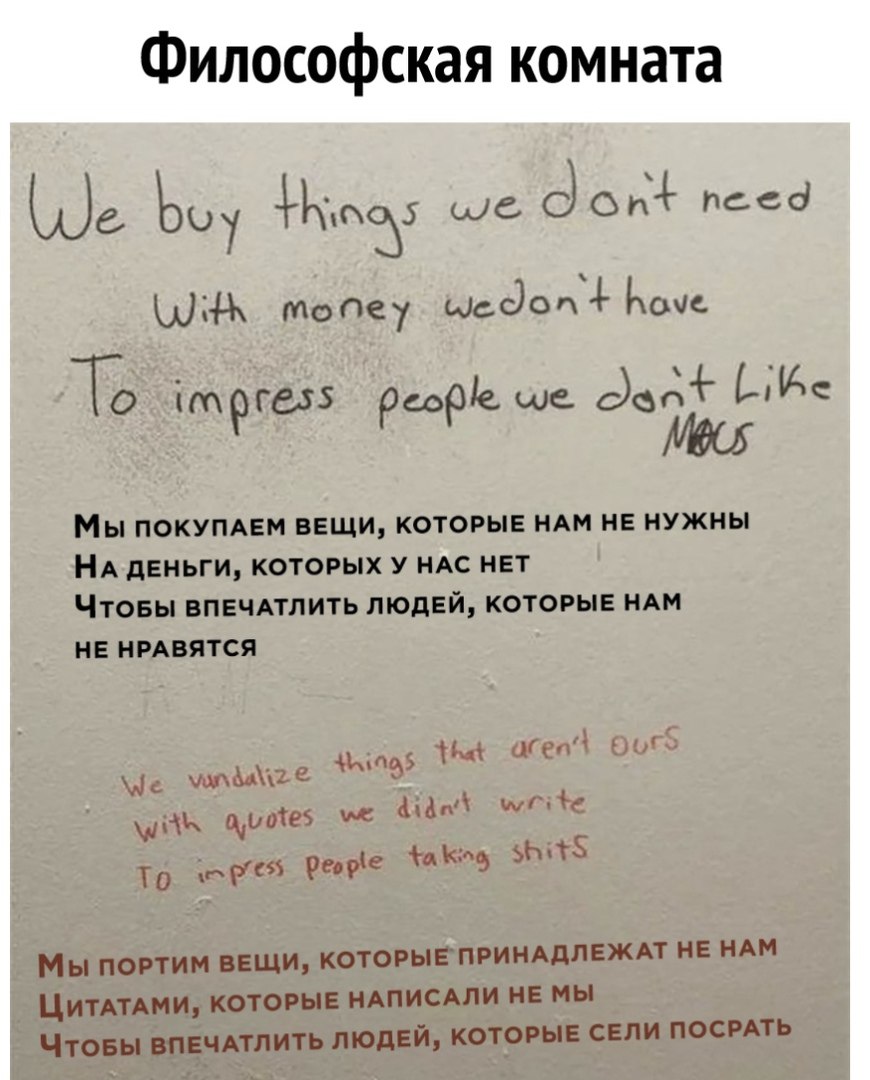 Философская комната
We buy things we don't need
With money we don't have
To impress people we don't Like
Мы покупаем вещи, которые нам не нужны
На деньги, которых у нас нет
Чтобы впечатлить людей, которые нам
не нравятся
We vandalize things that aren't ours
With quotes we didn't write
To impress People taking shits
Мы портим вещи, которые принадлежат не нам
Цитатами, которые написали не мы
Чтобы впечатлить людей, которые сели посрать